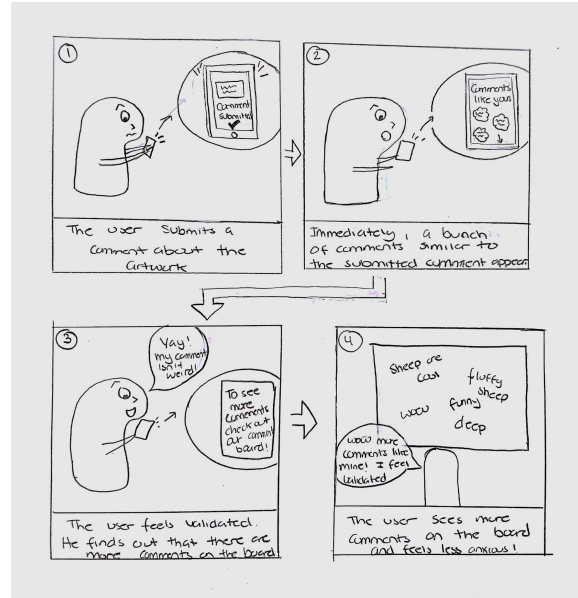 1
Comment
Submitted
The user Submits a
Comment about the
artwork
2
Comments
like yours
Immediately, a bunch
of comments similar to
the submitted comment appear.
3
Yay!
my comment
isn't
weird!
To see
more
comments
check out
our comment
board!
The user feels validated.
He finds out that there are
more comments on the board
4
Sheep are
cool
fluffy
sheep
woow
funny
deep
woow more
comments like
mine! I feel
validated
The user sees more
comments on the board
and feels less anxious!